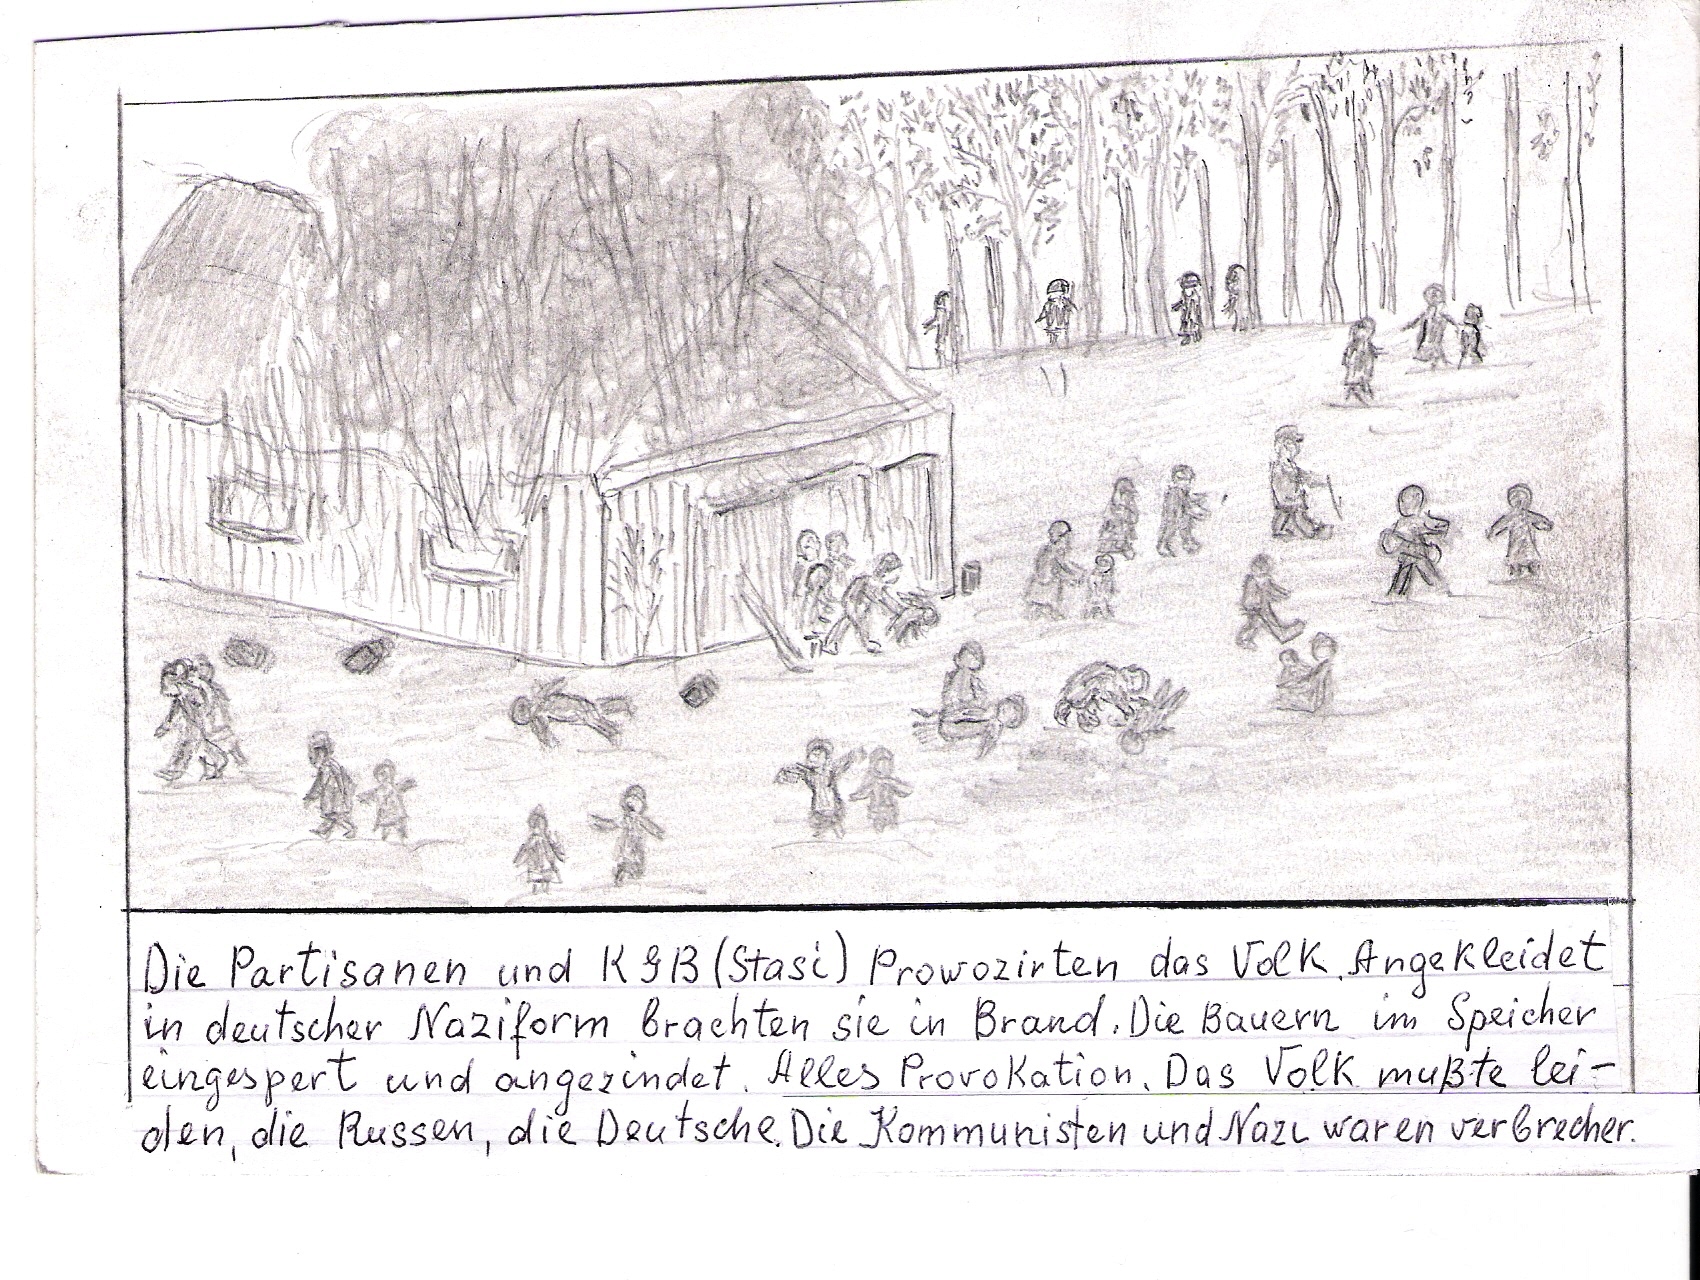 Die Partisanen und KGB (Stasi) Prowozirten das Volk. Angekleidet
in deutscher Naziform brachten sie in Brand. Die Bauern im Speicher
eingespert und angezindet. Alles Provokation. Das Volk mußte lei-
den, die Russen, die Deutsche. Die Kommunisten und Nazi waren verbrecher.